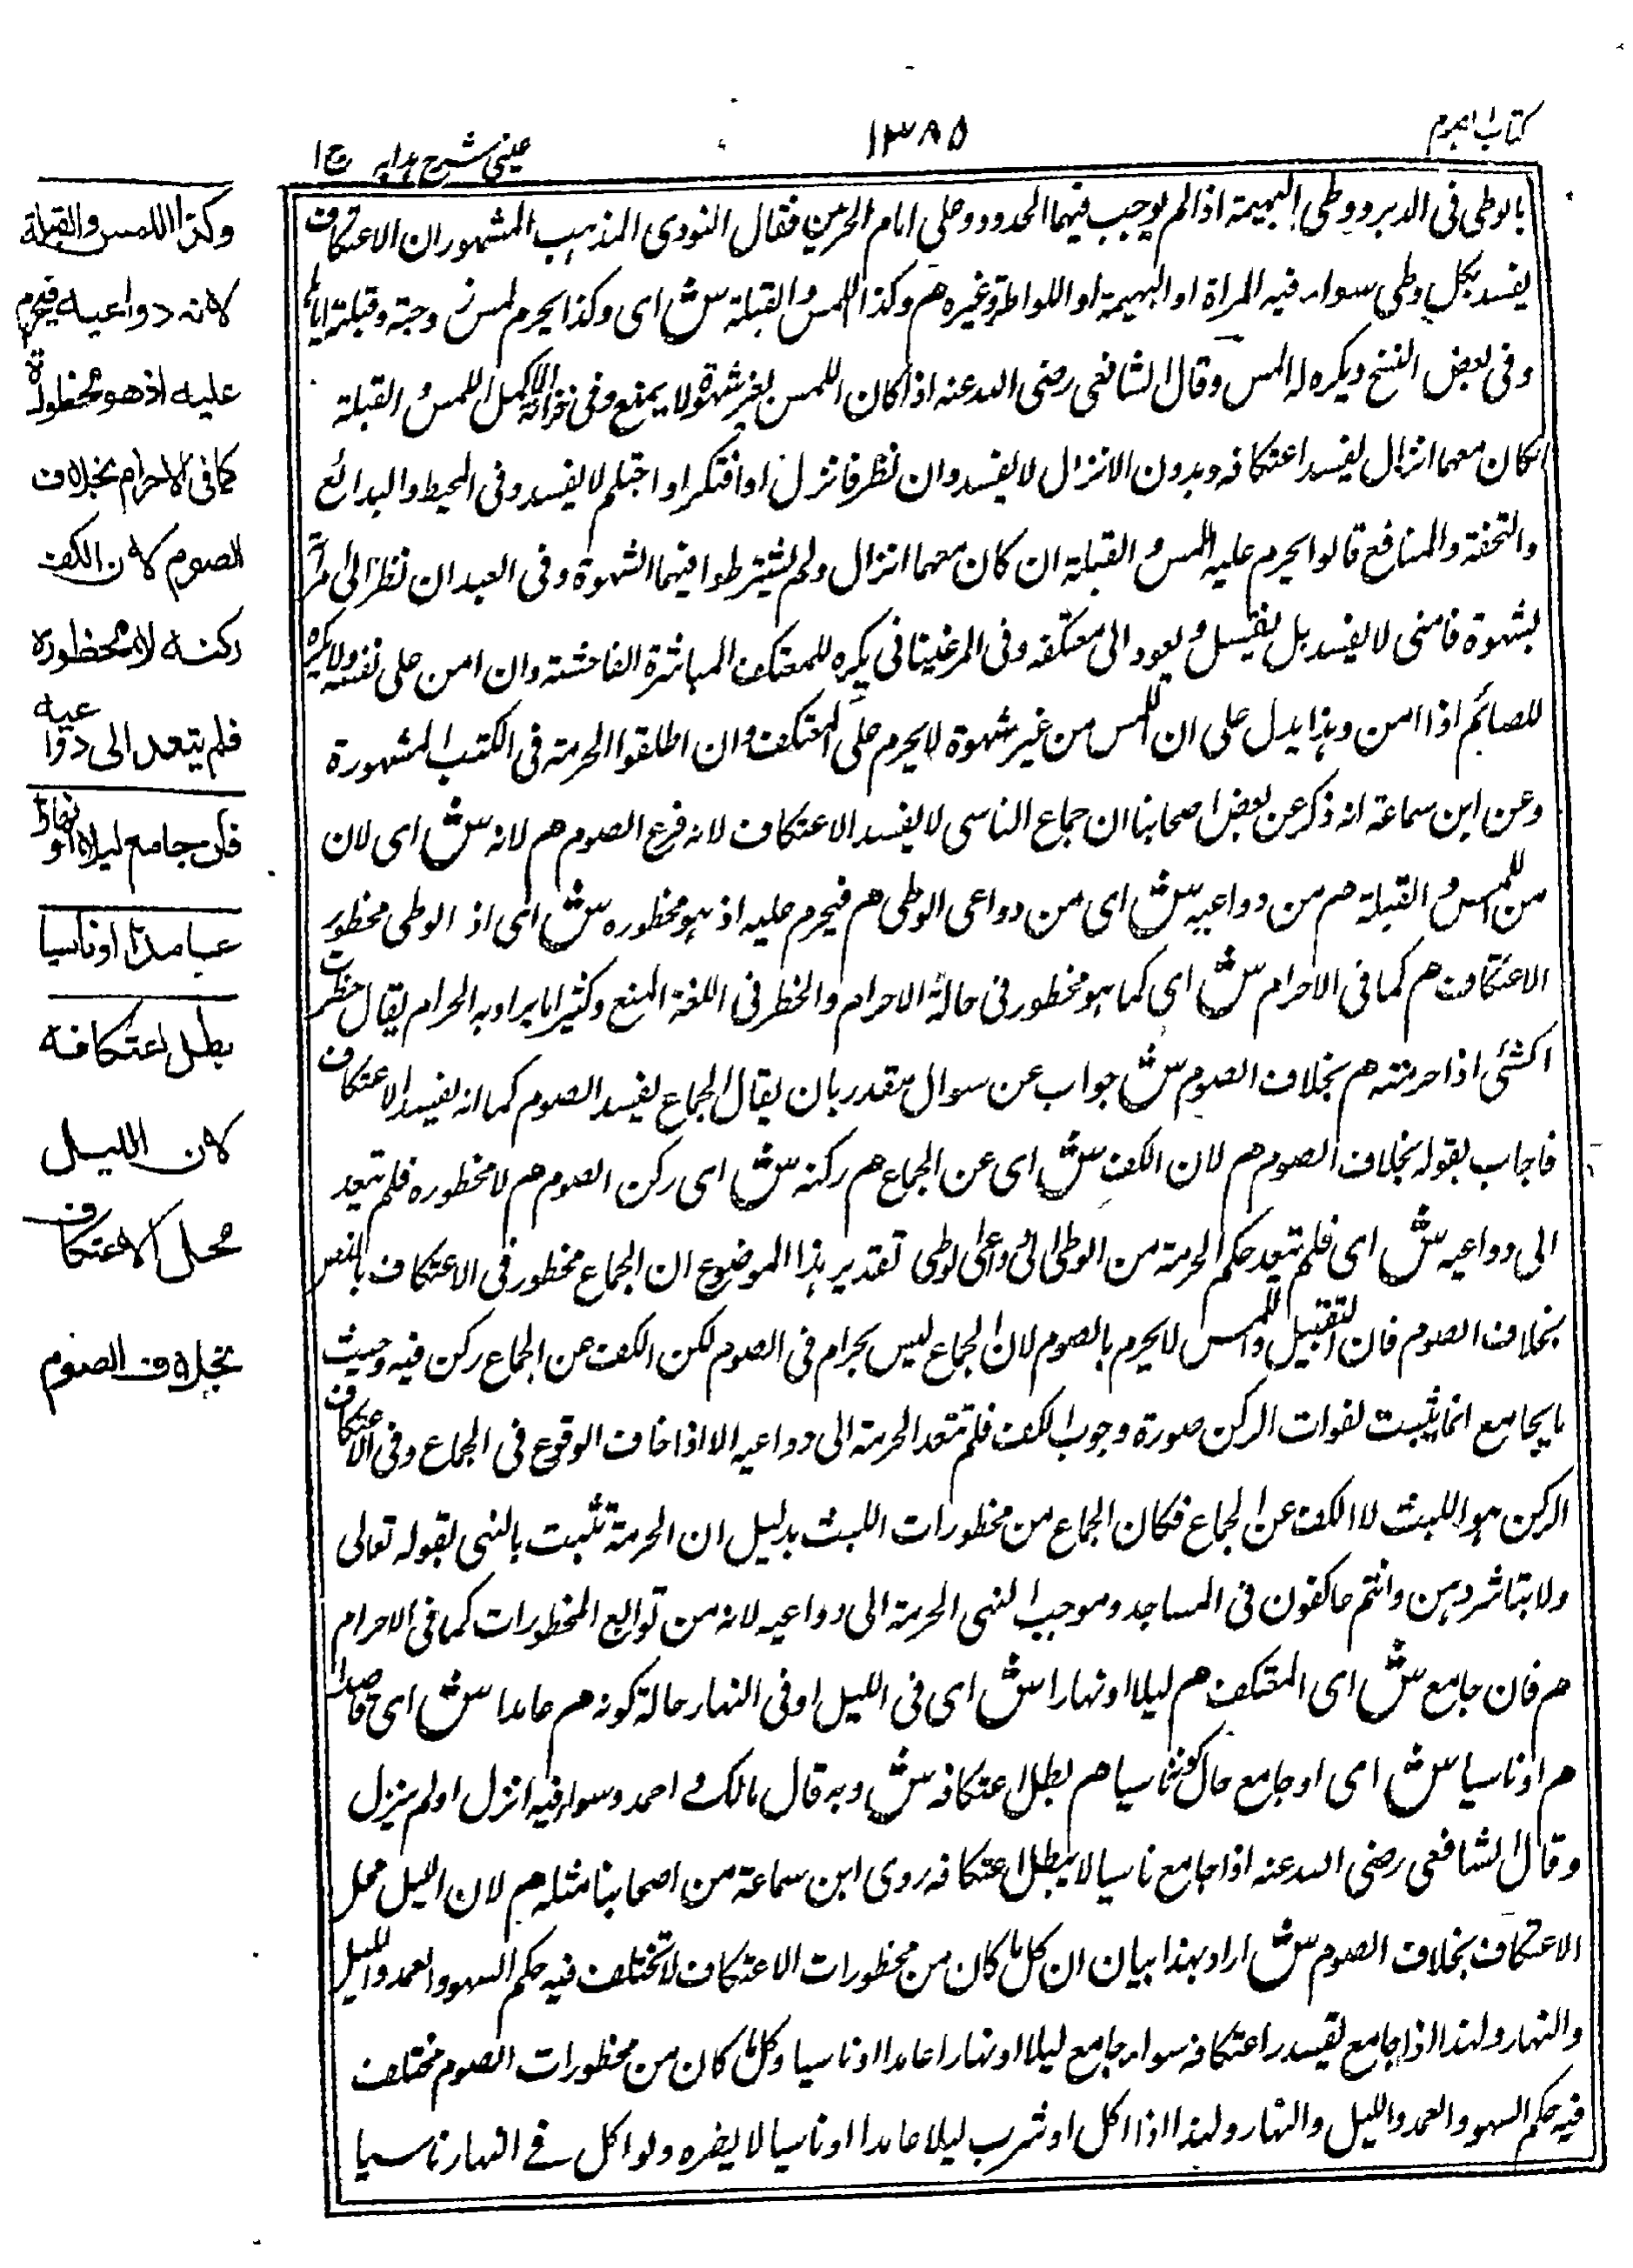 كتاب الصوم
١٣٨٥
عينى شرح هدايه ج ١
بالوطى فى الدبر ووطى البهيمة اذا لم يوجب فيهما الحد وروحلى امام الحرمين فقال النووى المذهب المشهور ان الاعتكاف
يفسد بكل وطى سواء فيه المراة او البهيمة او اللواطة وغيره هم وكذا اللمس والقبلة ش اى وكذا يحرم لمس زوجته وقبلته اياها
وفى بعض النسخ ويكره له المس وقال الشافعى رضى الله عنه اذا كان اللمس بغير شهوة لا يمنع وفى خزانة الاكمل اللمس والقبلة
ان كان معهما انزال يفسد اعتكافه وبدون الانزال لا يفسد وان نظر فانزل او افتكر او احتلم لا يفسد وفى المحيط والبدائع
والتحفة والمنافع قالوا يحرم عليه اللمس والقبلة ان كان معهما انزال ولم يشترطوا فيهما الشهوة وفى العبد ان نظر الى امرأة
بشهوة فامنى لا يفسد بل يغتسل ويعود الى معتكفه وفى المرغينانى يكره للمعتكف المباشرة الفاحشة وان امن على نفسه ولا يكره
للصائم اذا امن وهذا يدل على ان اللمس من غير شهوة لا يحرم على المعتكف وان اطلقوا الحرمة فى الكتب المشهورة
وعن ابن سماعة انه ذكر عن بعض اصحابنا ان جماع الناسى لا يفسد الاعتكاف لانه فرع الصوم هم لانه ش اى لان
من اللمس والقبلة هم من دواعيه ش اى من دواعى الوطى هم فيحرم عليه اذ هو محظوره ش اى اذ الوطى محظور
الاعتكاف هم كما فى الاحرام ش اى كما هو محظور فى حالة الاحرام والحظر فى اللغة المنع وكثيرا ما يراد به الحرام يقال حظرت
الشئى اذا حرمته هم بخلاف الصوم ش جواب عن سوال مقدر بان يقال الجماع يفسد الصوم كما انه يفسد الاعتكاف
فاجاب بقوله بخلاف الصوم هم لان الكف ش اى عن الجماع هم ركنه ش اى ركن الصوم هم لا محظوره فلم يتعد
الى دواعيه ش اى فلم يتعد حكم الحرمة من الوطى الى دواعى الوطى تقدير هذا الموضوع ان الجماع محظور فى الاعتكاف بالنص
بخلاف الصوم فان التقبيل واللمس لا يحرم بالصوم لان الجماع ليس بحرام فى الصوم لكن الكف عن الجماع ركن فيه وحيث
ما يجامع انما يثبت لفوات الركن صورة وجوب الكف فلم تتعد الحرمة الى دواعيه الا اذا خاف الوقوع فى الجماع وفى الاعتكاف
الركن هو اللبث لا الكف عن الجماع فكان الجماع من محظورات اللبث بدليل ان الحرمة تثبت بالنهى بقوله تعالى
ولا تباشروهن وانتم عاكفون فى المساجد وموجب النهى الحرمة الى دواعيه لانه من توابع المحظورات كما فى الاحرام
هم فان جامع ش اى المعتكف هم ليلا او نهارا ش اى فى الليل او فى النهار حالة كونه هم عامدا ش اى قاصدا
هم او ناسيا ش اى او جامع حال كونه ناسيا هم بطل اعتكافه ش وبه قال مالك و احمد وسواء فيه انزل او لم ينزل
وقال الشافعى رضى الله عنه اذا جامع ناسيا لا يبطل اعتكافه روى ابن سماعة من اصحابنا مثله هم لان الليل محل
الاعتكاف بخلاف الصوم ش اراد بهذا بيان ان كل ما كان من محظورات الاعتكاف لا تختلف فيه حكم السهو والعمد والليل
والنهار ولهذا اذا جامع يفسد اعتكافه سواء جامع ليلا او نهارا عامدا او ناسيا وكل ما كان من محظورات الصوم مختلف
فيه حكم السهو والعمد والليل والنهار ولهذا اذا اكل او شرب ليلا عامدا او ناسيا لا يضره ولو اكل فے النهار ناسيا
وكذا اللمس والقبلة
لانه دواعيه فيحرم
عليه اذ هو محظوره
كما فى الاحرام بخلاف
الصوم لان الكف
ركنه لا محظوره
فلم يتعد الى دواعيه
فان جامع ليلا او نهارا
عامدا او ناسيا
بطل اعتكافه
لان الليل
محل الاعتكاف
بخلاف الصوم